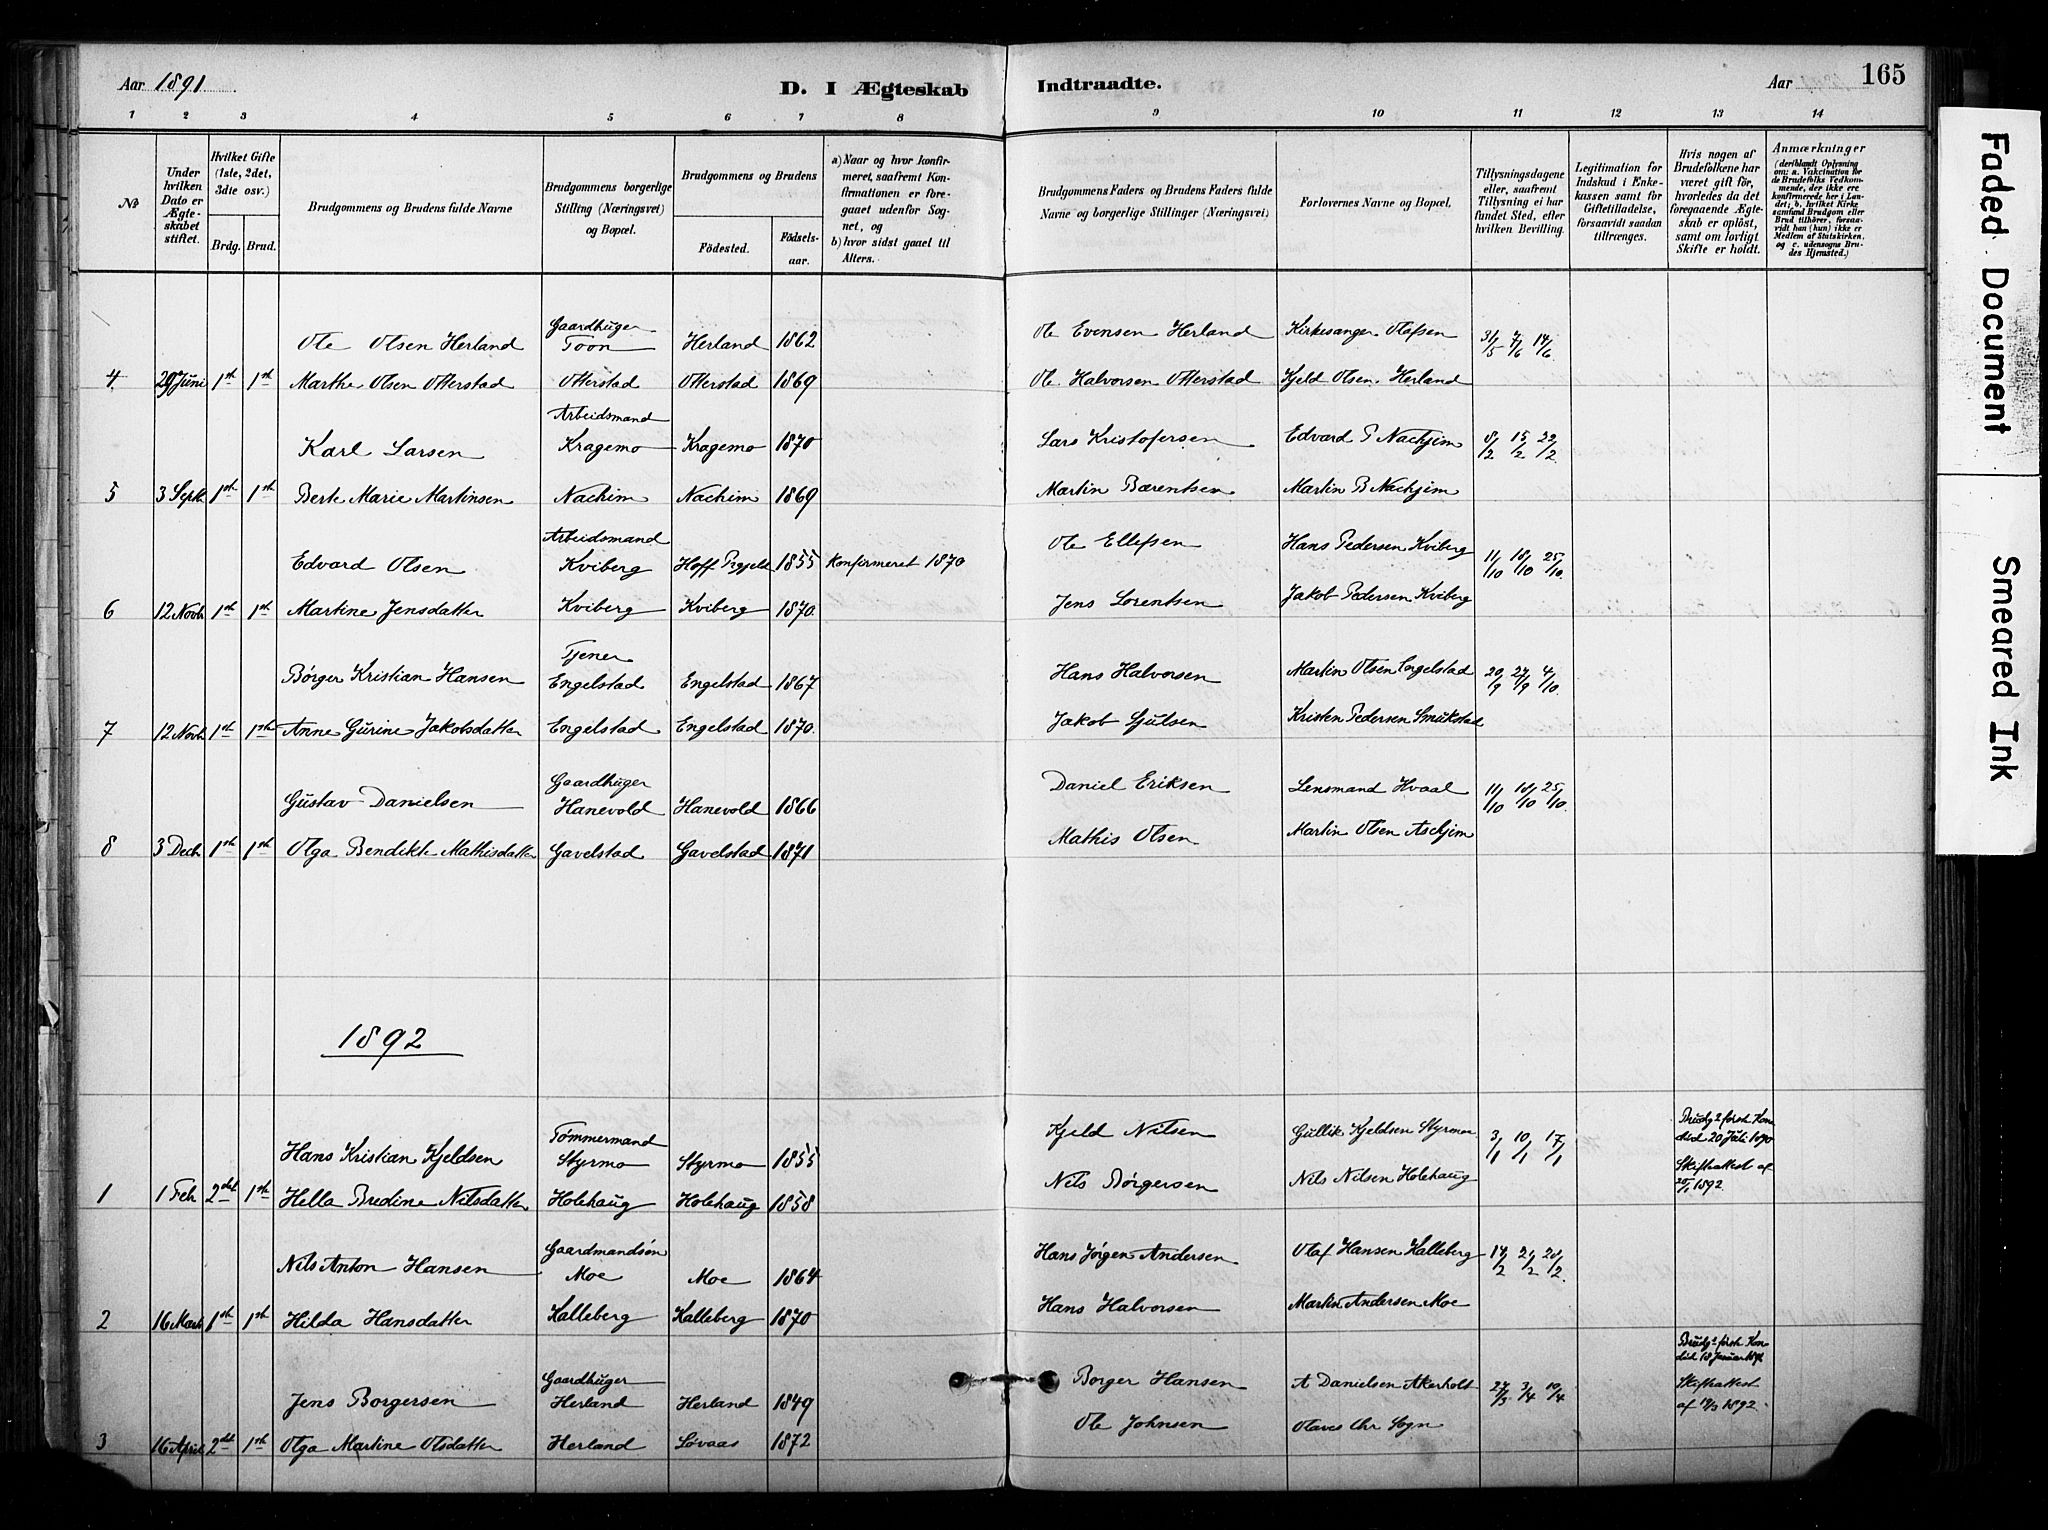 Aar 1891
D. I Ægteskab Indtraadte.
Aar
165
1 2 3 4 5 6 7 8 9 10 11 12 13 14
No
Under hvilken Dato er Ægteskabet stiftet.
Hvilket Gifte (1ste, 2det, 3die osv.)
Brdg. Brud.
Brudgommens og Brudens fulde Navne
Brudgommens borgerlige Stilling (Næringsvei) og Bopæl.
Brudgommens og Brudens
Födested.
Födselsaar.
a) Naar og hvor konfirmeret, saafremt Konfirmationen er foregaaet udenfor Sognet, og
b) hvor sidst gaaet til Alters.
Brudgommens Faders og Brudens Faders fulde Navne og borgerlige Stillinger (Næringsvei)
Forlovernes Navne og Bopæl.
Tillysningsdagene eller, saafremt Tillysning ei har fundet Sted, efter hvilken Bevilling.
Legitimation for Indskud i Ænkekassen samt for Giftetilladelse, forsaavidt saadan tiltrænges.
Hvis nogen af Brudefolkene har været gift för, hvorledes da det foregaaende Ægteskab er oplöst, samt om lovligt Skifte er holdt.
Anmærkninger
(deriblandt Oplysning om: a. Vakcination for de Brudefolks Vedkommende, der ikke ere konfirmerede her i Landet; b. hvilket Kirkesamfund Brudgom eller Brud tilhörer, forsaavidt han (hun) ikke er Medlem af Statskirken, og c. udensogns Brudes Hjemsted.)
Gaardbruger
Ole Olsen Herland Toon Herland 1862 Ole Evensen Herland Kirkesanger Olafsen 31/5 7/6 14/6
4. 29 Juni 1st 1st Marthe Olsen Otterstad Otterstad Otterstad 1869 Ole Halvorsen Otterstad Kjeld Olsen Herland
Arbeidsmand
Karl Larsen Kragemo Kragemo 1870 Lars Kristofersen Edvard P Nachjim 8/2 15/2 22/2
5 3 Septr 1st 1st Berte Marie Martinsen Nachim Nachim 1869 Martin Bærentsen Martin B Nachjim
Arbeidsmand
Edvard Olsen Kviberg Hoff Prgjeld 1855 Konfirmeret 1870 Ole Ellefsen Hans Pedersen Kviberg 11/10 18/10 25/10
6 12 Novbr 1st 1st Martine Jensdatter Kviberg Kviberg 1870. Jens Lorentsen Jakob Pedersen Kviberg
Tjener
Börger Kristian Hansen Engelstad Engelstad 1867 Hans Halvorsen Martin Olsen Engelstad 20/9 27/9 4/10
7 12 Novbr 1st 1st Anne Gurine Jakobsdatter Engelstad Engelstad 1870. Jakob Hjulsen Kristen Pedersen Smukstad
Gaardbruger
Gustav Danielsen Hanevold Hanevold 1866 Daniel Eriksen Lensmand Hvaal 11/10 18/10 25/10
8 3 Decbr 1st 1st Olga Bendikte Mathisdatter Gavelstad Gavelstad 1871 Mathis Olsen Martin Olsen Askjim
1892
Tømmermand
Hans Kristian Kjeldsen Styrmo Styrmo 1855 Kjeld Nilsen Gullik Kjeldsen Styrmo 3/1 10/1 17/1 Brudgs först Kone död 20 Juli 1890
1 1 Febr 2det 1ste Hella Bredine Nilsdatter Holehaug Holehaug 1858 Nils Börgersen Nils Nilsen Holehaug Skifteattest af 25/1 1892.
Gaardmandsön
Nils Anton Hansen Moe Moe 1864 Hans Jørgen Andersen Olaf Hansen Kalleberg 14/2 21/2 28/2
2 16 Marts 1st 1st Hilda Hansdatter Kalleberg Kalleberg 1870 Hans Halvorsen Martin Andersen Moe
Gaardbruger
Jens Borgersen Herland Herland 1849 Borger Hansen A Danielsen Akerholt 27/3 3/4 10/4 Brudgs först Kone död 18 Januar
3 16 April 2det 1st Olga Martine Olsdatter Herland Løvaas 1872 Ole Johnsen Olaves Chr Sogn Skifteattest af 1892.
Faded Document
Smeared Ink